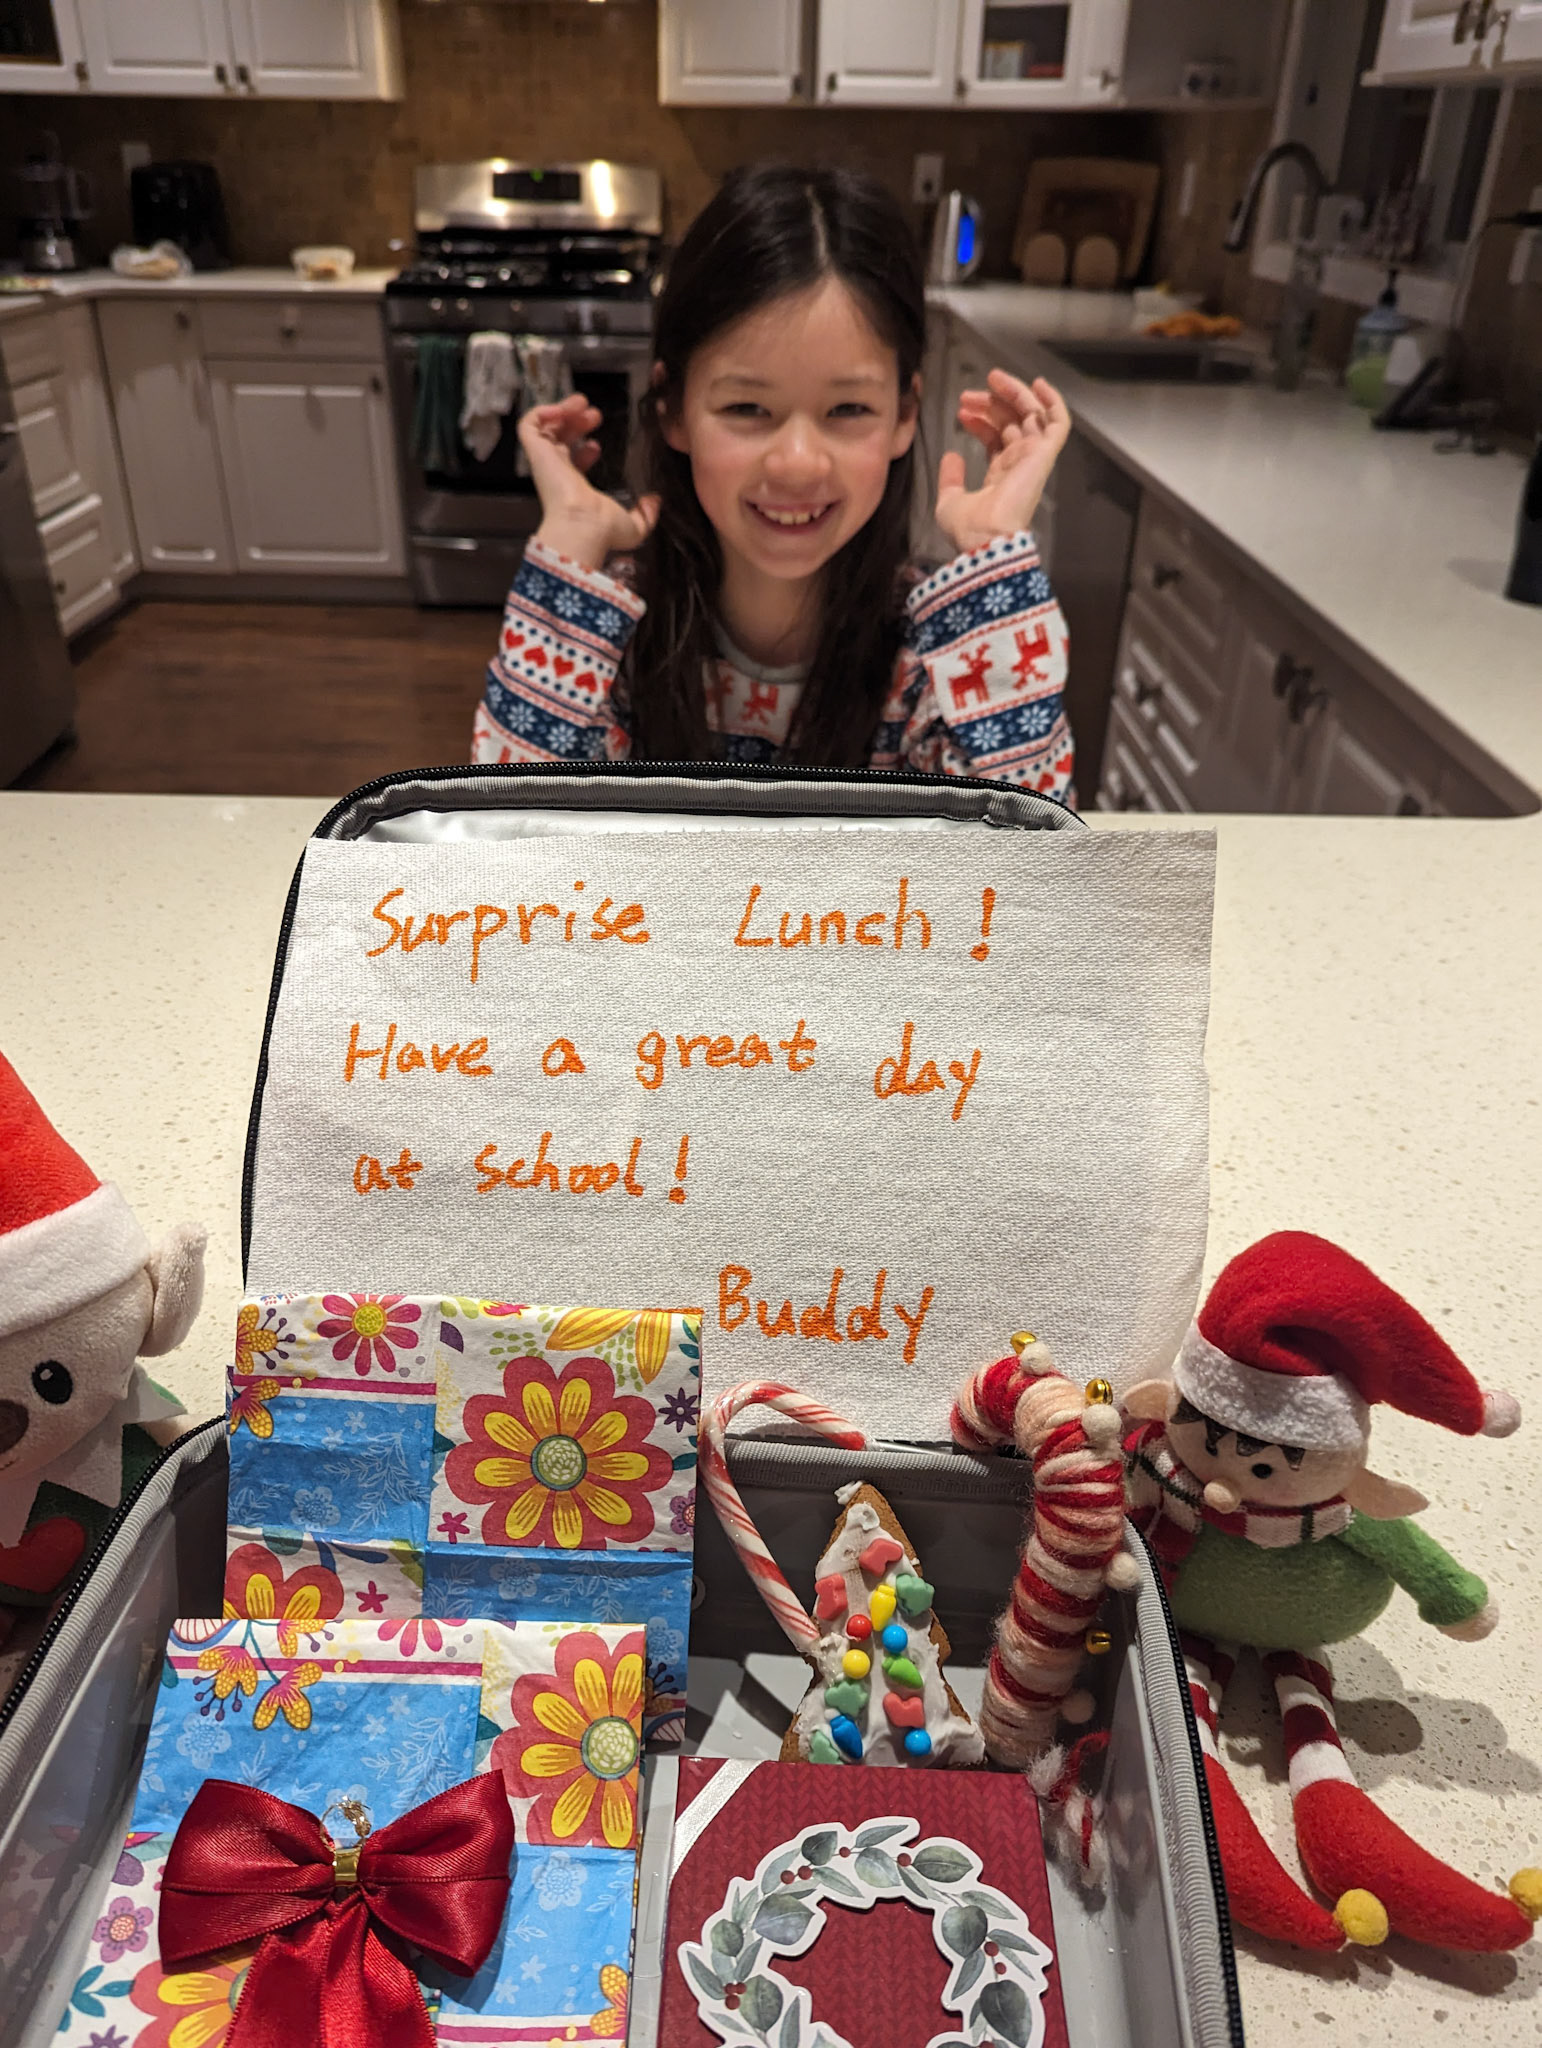 Surprise Lunch!
Have a great day
at school!
Buddy